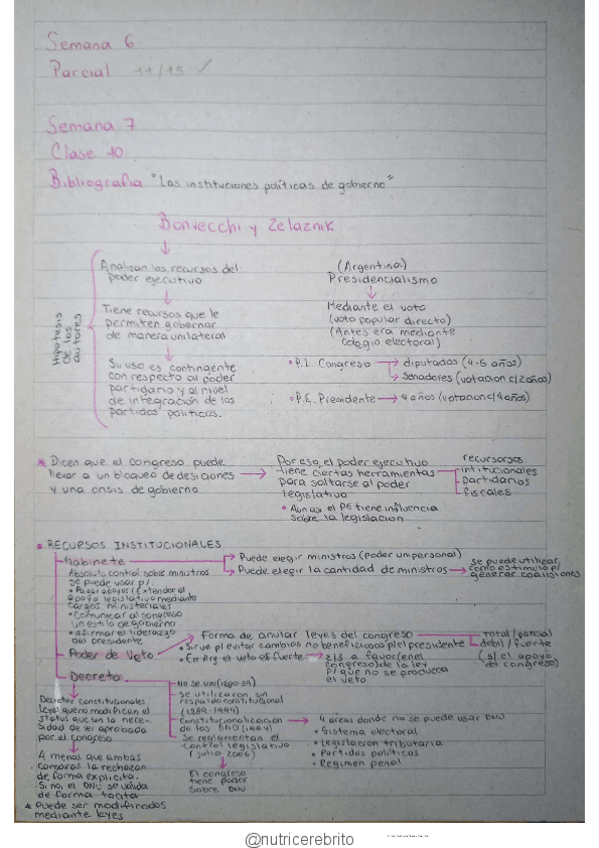 Semana 6
Parcial 11/15 ✓
Semana 7
Clase 10
Bibliografia "Las instituciones políticas de gobierno"
Bonvecchi y Zelaznik
Hipotesis
de los
autores
Analizan los recursos del
poder ejecutivo
Tiene recursos que le
permiten gobernar
de manera unilateral
Su uso es contingente
con respecto al poder
partidario y al nivel
de integración de los
partidos políticos.
(Argentina)
Presidencialismo
Mediante el voto
(voto popular directo)
(Antes era mediante
colegio electoral)
• P.L. Congreso → diputados (4-6 años)
→ senadores (votacion c/2años)
• P.E. Presidente → 4 años (votacion c/4años)
* Dicen que el congreso puede
llevar a un bloqueo de desiciones
y una crisis de gobierno
Por eso, el poder ejecutivo
tiene ciertas herramientas
para saltarse al poder
legislativo
• Aun asi el PE tiene influencia
sobre la legislacion
recursorsos
intitucionales
partidarios
fiscales
• RECURSOS INSTITUCIONALES
Gabinete
Absoluto control sobre ministros
Se puede usar p/:
• Pagar apoyos (Extender el
apoyo legislativo mediante
cargos ministeriales
• Comunicar al congreso
un estilo de gobierno
• afirmar el liderazgo
del presidente
Puede elegir ministros (poder unipersonal)
Puede elegir la cantidad de ministros → se puede utilizar
como estimulo p/
generar coaliciones
Poder de Veto
Forma de anular leyes del congreso
• Sirve p/ evitar cambios no beneficiosos p/el presidente
• En Arg el veto es fuerte → 2/3 a favor (en el
congreso) de la ley
p/ que no se produzca
el veto
total / parcial
debil / fuerte
(s/ el apoyo
del congreso)
Decreto
No se uso (1820-59)
Se utilizaron sin
respaldo constitucional
(1889-1994)
Constitucionalizacion
de los DNU (1994)
Se reglamentan el
control legislativo
(julio 2006)
El congreso
tiene poder
sobre DNU
4 areas donde no se puede usar DNU
• Sistema electoral
• Legislacion tributaria
• Partidos politicos
• Regimen penal
Decretos constitucionales
status quo sin la nece-
sidad de ser aprobada
por el congreso
A menos que ambas
camaras la rechazan
de forma explicita.
Si no, el DNU se valida
de forma tacita
* Puede ser modificados
mediante leyes
@nutricerebrito